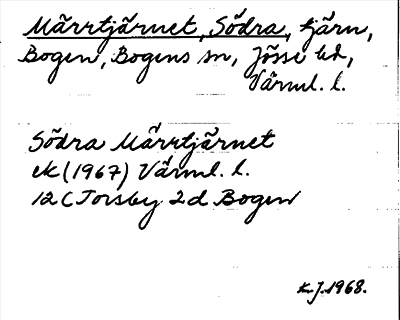 Märrtjärnet, Södra, tjärn,
Bogen, Bogens sn, Jösse hd,
Värml. l.
Södra Märrtjärnet
ek (1967) Värml. l.
12 C Torsby 2 d Bogen
K.J. 1968.